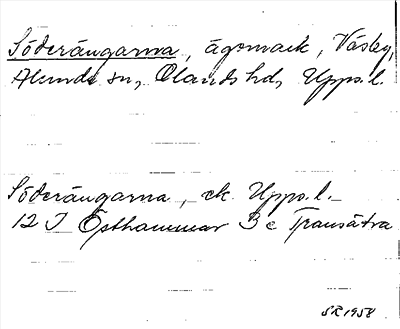 Söderängarna, ägomark, Väsby,
Alunda sn, Olands hd, Upps. l.
Söderängarna, ek. Upps. l.
12 I Östhammar 3 c Transätra
SR 1958